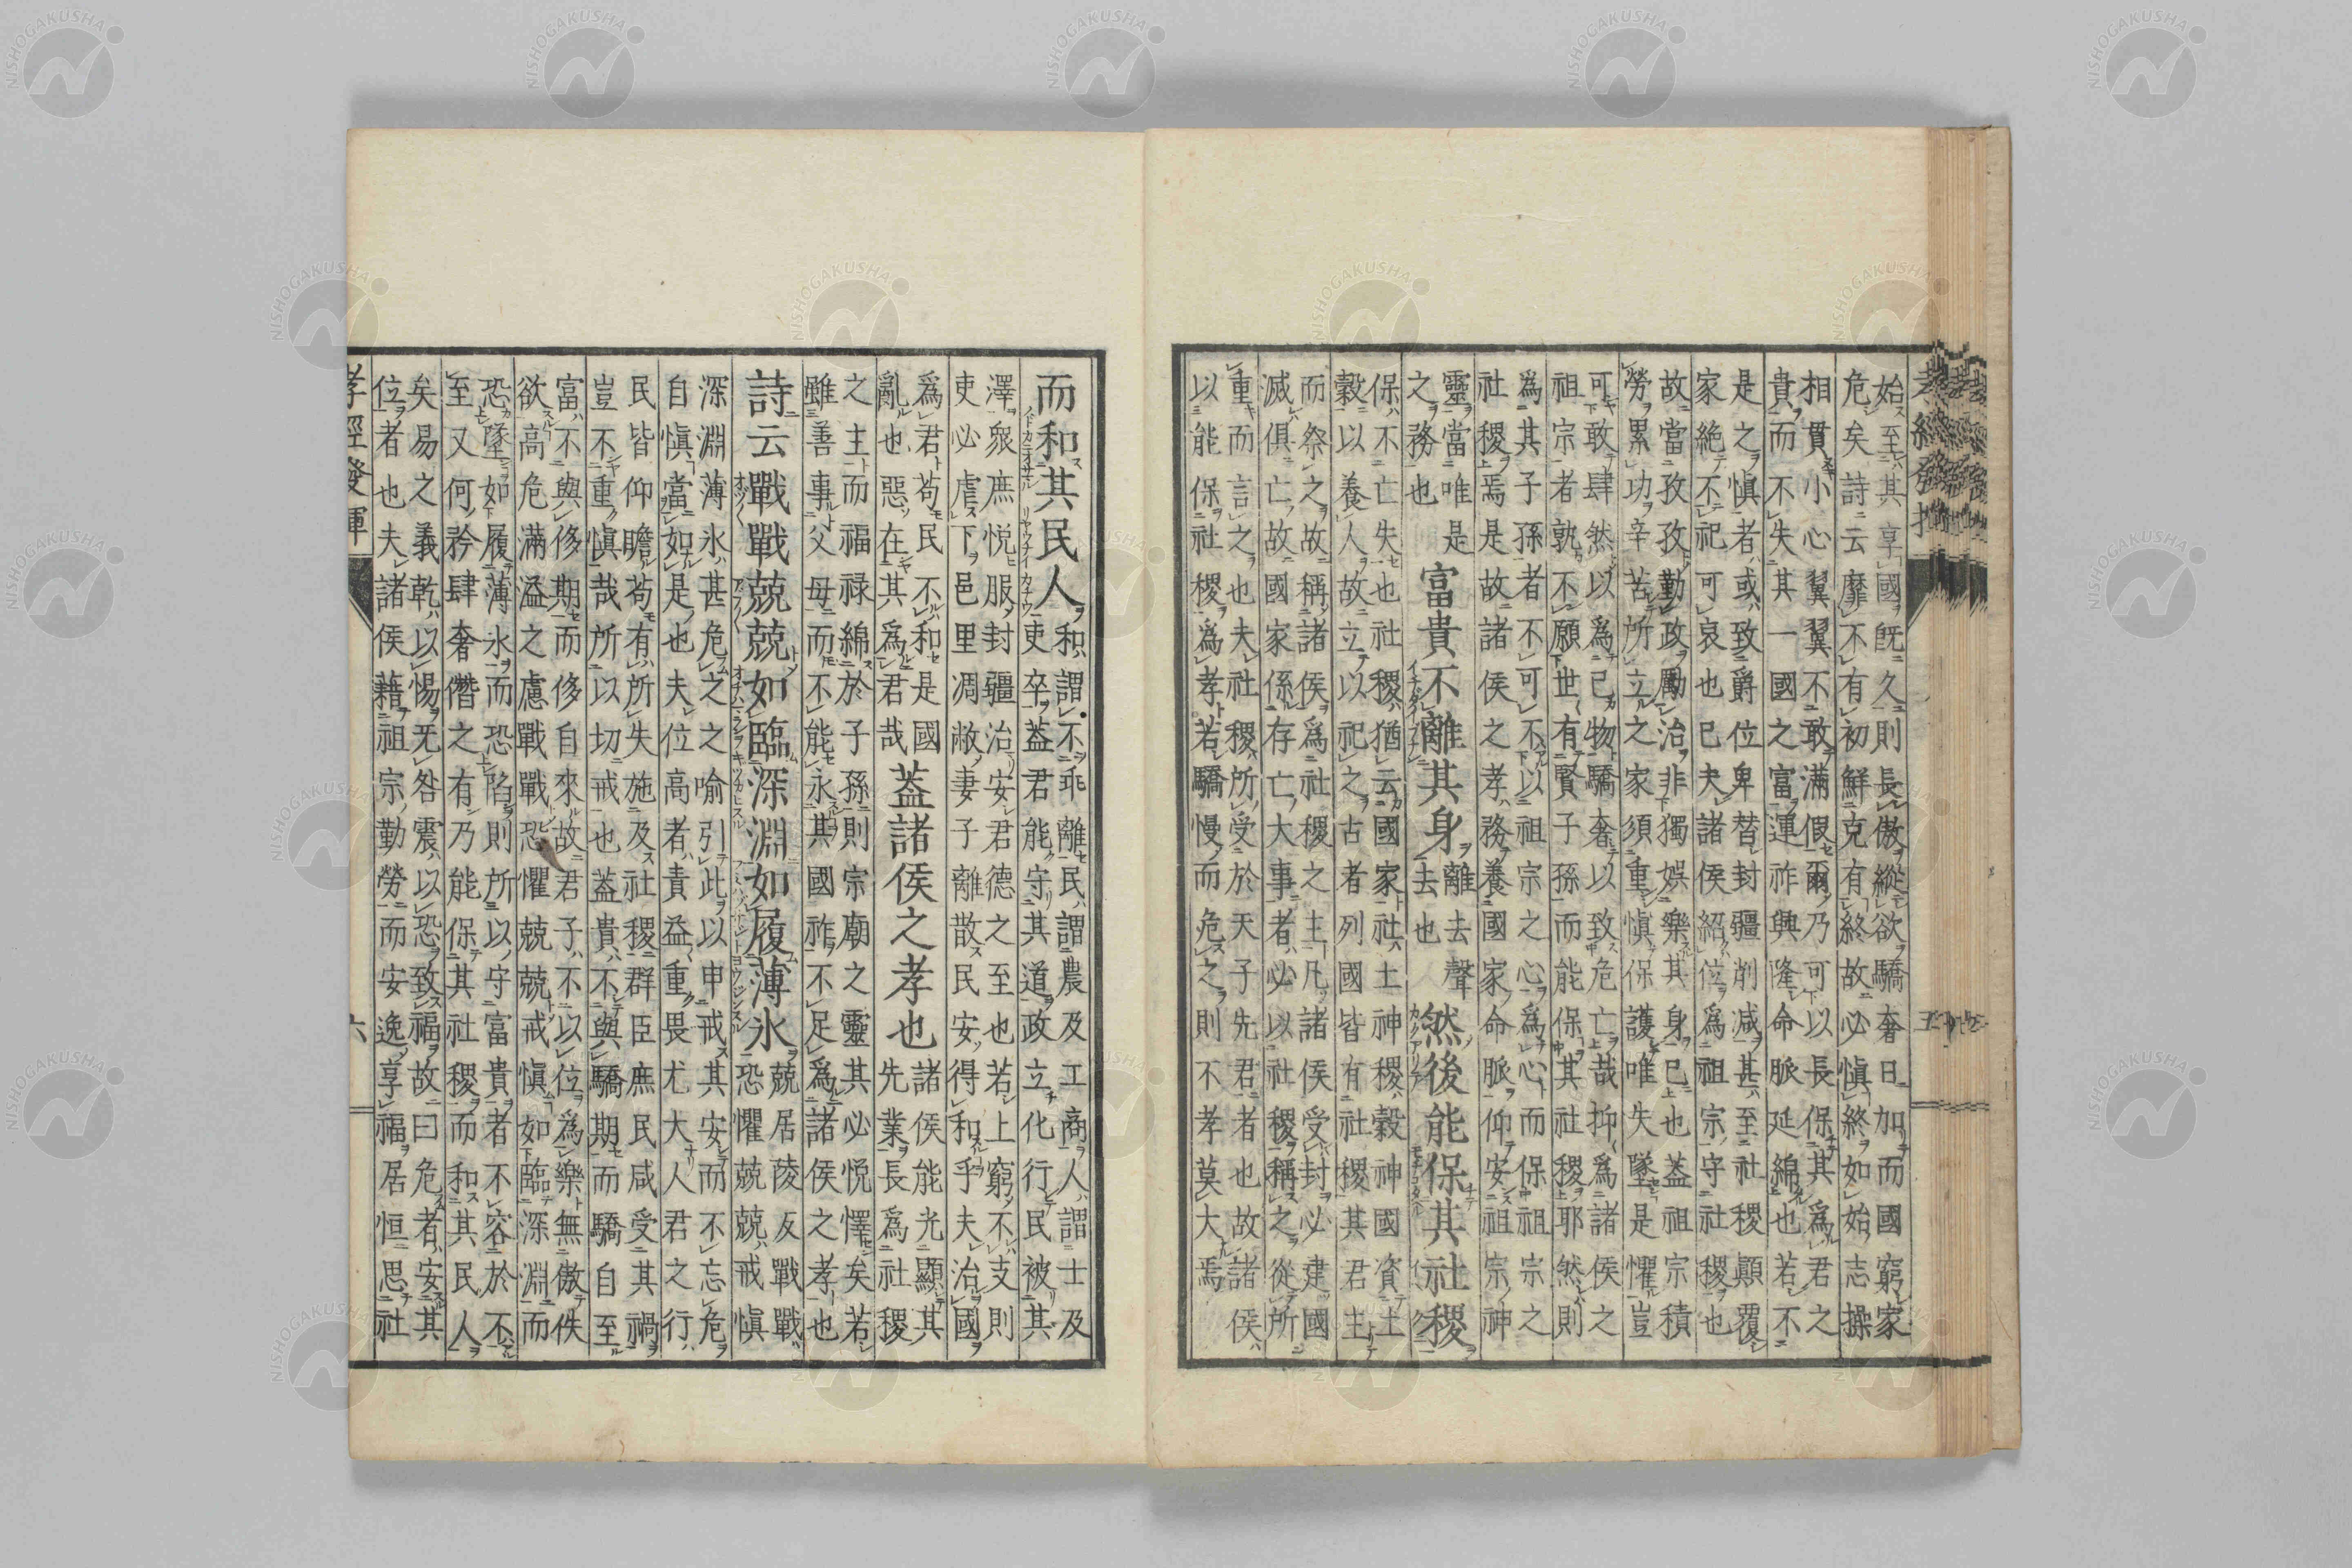 始至其享國既久則長傲縱欲驕奢日加而國窮家
危矣詩云靡不有初鮮克有終故必愼終如始志操
相貫小心翼翼不敢滿假爾乃可以長保其爲君之
貴而不失其一國之富運祚興隆命脈延綿也若不
是之愼者或致爵位卑替封疆削減甚至社稷顚覆
家絶不祀可哀也已夫諸侯紹位爲祖宗守社稷也
故當孜孜勤政厲治非獨娯樂其身已也蓋祖宗積
勞累功辛苦所立之家須重愼保護唯失墜是懼豈
可敢肆然以爲己物驕奢以致危亡哉抑爲諸侯之
祖宗者孰不願世有賢子孫而能保其社稷耶然則
爲其子孫者不可不以祖宗之心爲心而保祖宗之
社稷焉是故諸侯之孝務養國家命脈仰安祖宗神
靈當唯是
之務也
富貴不離其身
離去聲
去也
然後能保其社稷
保不亡失也社稷猶云國家社土神稷穀神國資土
穀以養人故立以祀之古者列國皆有社稷其君主
而祭之故稱諸侯爲社稷之主凡諸侯受封必建國
滅俱亡故國家係存亡大事者必以社稷稱之從所
重而言之也夫社稷所受於天子先君者也故諸侯
以能保社稷爲孝若驕慢而危之則不孝莫大焉
而和其民人
和謂不乖離民謂農及工商人謂士及
吏卒蓋君能守其道政立化行民被其
澤衆庶悦服封疆治安君德之至也若上窮不支則
吏必虐下邑里凋敝妻子離散民安得和乎夫治國
爲君苟民不和是國
亂也惡在其爲君哉
蓋諸侯之孝也
諸侯能光顯其
先業長爲社稷
之主而福禄綿於子孫則宗廟之靈其必悦懌矣若
雖善事父母而不能永其國祚不足爲諸侯之孝也
詩云戰戰兢兢如臨深淵如履薄氷
兢居陵反戰戰
恐懼兢兢戒愼
深淵薄氷甚危之之喩引此以申戒其安而不忘危
自愼當如是也夫位高者責益重畏尤大人君之行
民皆仰瞻苟有所失施及社稷群臣庶民咸受其禍
豈不重愼哉所以切戒也蓋貴不與驕期而驕自至
富不與侈期而侈自來故君子不以位爲樂無傲佚
欲高危滿溢之慮戰戰恐懼兢兢戒愼如臨深淵而
恐墜如履薄氷而恐陷則所以守富貴者不容於不
至又何矜肆奢僭之有乃能保其社稷而和其民人
矣易之義乾以惕无咎震以恐致福故曰危者安其
位者也夫諸侯藉祖宗勤勞而安逸享福居恒思社
孝經發揮
六